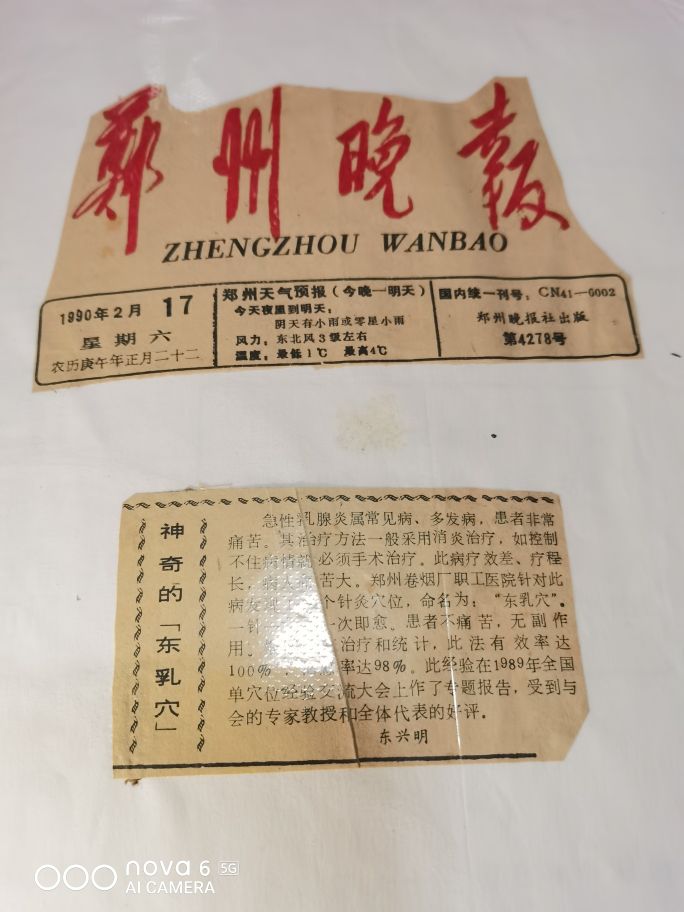 郑州晚报
ZHENGZHOU WANBAO
1990年2月 17
星期六
农历庚午年正月二十二
郑州天气预报（今晚—明天）
今天夜里到明天：
阴天有小雨或零星小雨
风力：东北风3级左右
温度：最低1℃ 最高4℃
国内统一刊号：CN41—0002
郑州晚报社出版
第4278号
神奇的「东乳穴」
急性乳腺炎属常见病、多发病，患者非常
痛苦。其治疗方法一般采用消炎治疗，如控制
不住病情就必须手术治疗。此病疗效差、疗程
长，病人 苦大。郑州卷烟厂职工医院针对此
病发 个针灸穴位，命名为：“东乳穴”。
一针 一次即愈。患者不痛苦，无副作
用。 治疗和统计，此法有效率达
100% 率达98%。此经验在1989年全国
单穴位经验交流大会上作了专题报告，受到与
会的专家教授和全体代表的好评．
东兴明
nova 6 5G
AI CAMERA